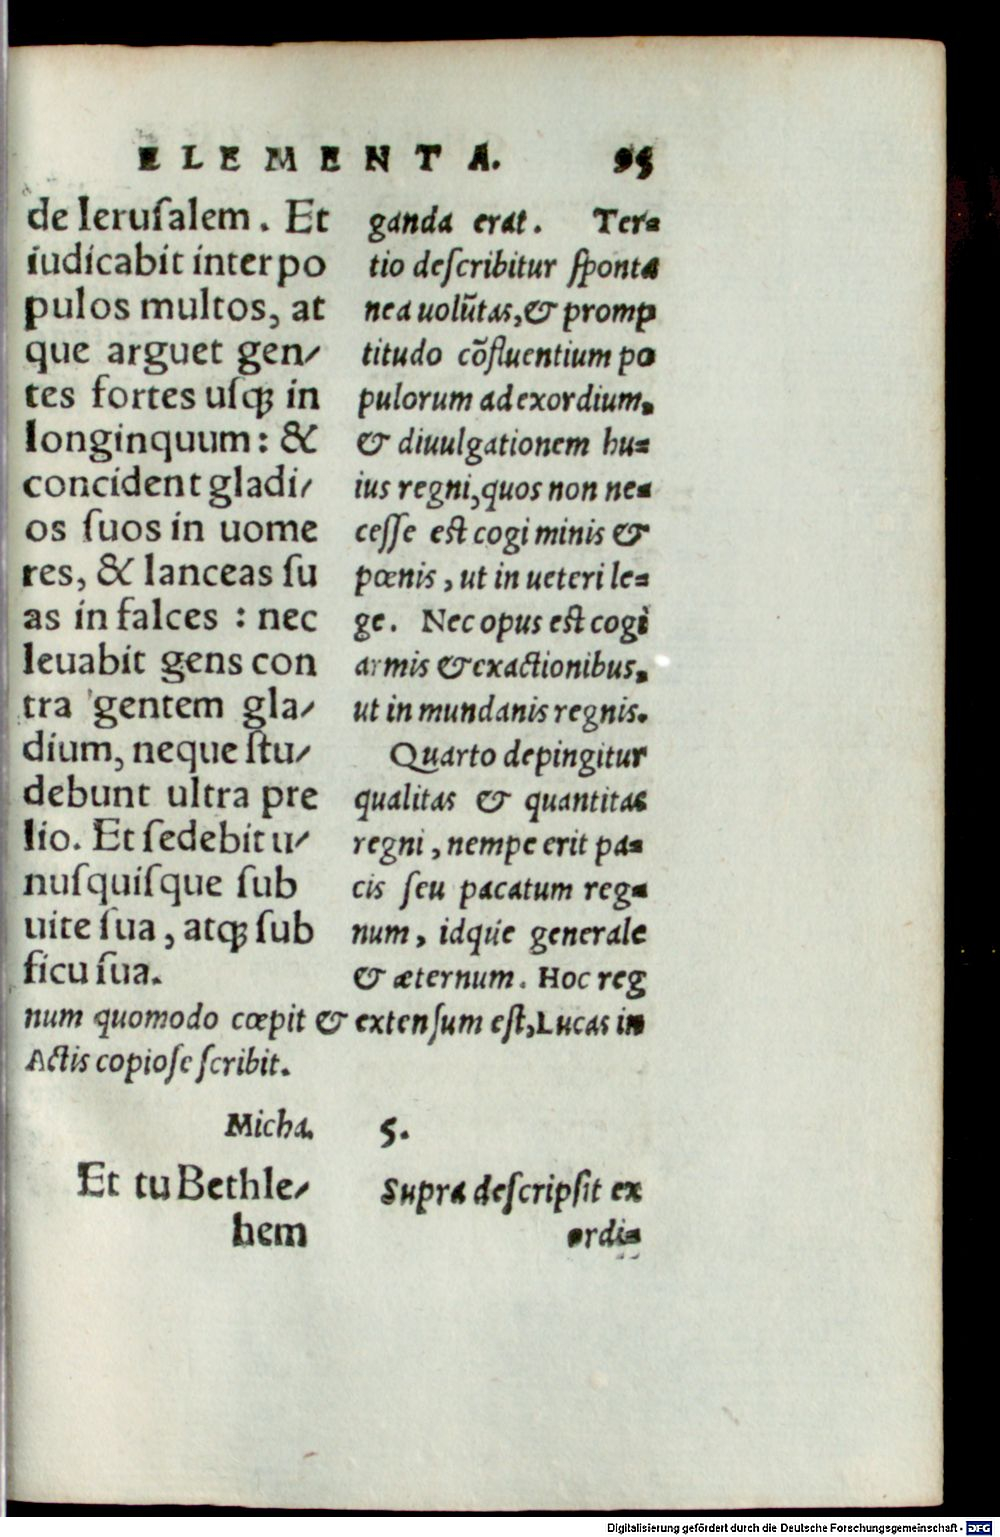 ELEMENTA. 95
de Ieruſalem. Et
iudicabit inter po
pulos multos, at
que arguet gen/
tes fortes uſqꝫ in
longinquum: &
concident gladi/
os ſuos in uome
res, & lanceas ſu
as in falces : nec
leuabit gens con
tra gentem gla/
dium, neque ſtu/
debunt ultra pre
lio. Et ſedebit u/
nuſquiſque ſub
uite ſua, atqꝫ ſub
ficu ſua.
ganda erat. Ter=
tio deſcribitur ſponta
nea uolũtas, & promp
titudo cõfluentium po
pulorum ad exordium,
& diuulgationem hu=
ius regni, quos non ne=
ceſſe eſt cogi minis &
pœnis, ut in ueteri le=
ge. Nec opus eſt cogi
armis & exactionibus,
ut in mundanis regnis.
Quarto depingitur
qualitas & quantitas
regni, nempe erit pa=
cis ſeu pacatum reg=
num, idque generale
& æternum. Hoc reg
num quomodo cœpit & extenſum eſt, Lucas in
Actis copioſe ſcribit.
Micha. 5.
Et tu Bethle/
hem
Supra deſcripſit ex
ordi=
Digitalisierung gefördert durch die Deutsche Forschungsgemeinschaft - DFG